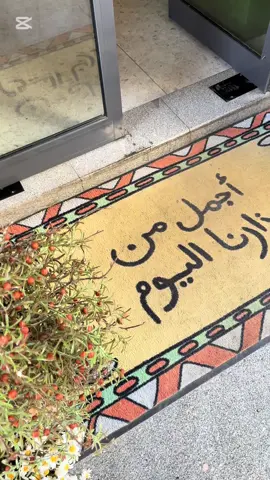 CapCut
أجمل من
زارنا اليوم